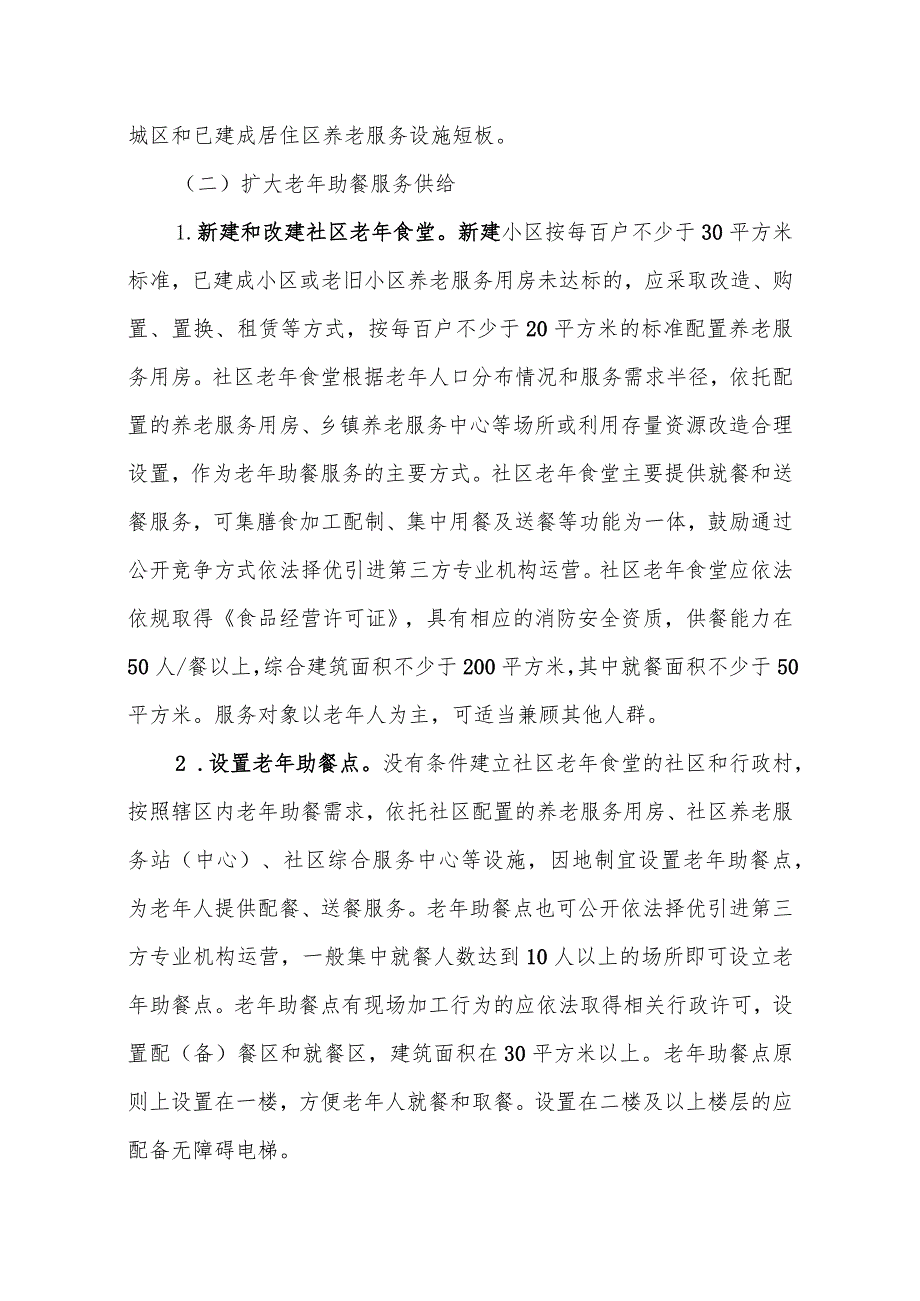 城区和已建成居住区养老服务设施短板。
（二）扩大老年助餐服务供给
1.新建和改建社区老年食堂。新建小区按每百户不少于30平方米
标准，已建成小区或老旧小区养老服务用房未达标的，应采取改造、购
置、置换、租赁等方式，按每百户不少于20平方米的标准配置养老服
务用房。社区老年食堂根据老年人口分布情况和服务需求半径，依托配
置的养老服务用房、乡镇养老服务中心等场所或利用存量资源改造合理
设置，作为老年助餐服务的主要方式。社区老年食堂主要提供就餐和送
餐服务，可集膳食加工配制、集中用餐及送餐等功能为一体，鼓励通过
公开竞争方式依法择优引进第三方专业机构运营。社区老年食堂应依法
依规取得《食品经营许可证》，具有相应的消防安全资质，供餐能力在
50人/餐以上，综合建筑面积不少于200平方米，其中就餐面积不少于50
平方米。服务对象以老年人为主，可适当兼顾其他人群。
2.设置老年助餐点。没有条件建立社区老年食堂的社区和行政村，
按照辖区内老年助餐需求，依托社区配置的养老服务用房、社区养老服
务站（中心）、社区综合服务中心等设施，因地制宜设置老年助餐点，
为老年人提供配餐、送餐服务。老年助餐点也可公开依法择优引进第三
方专业机构运营，一般集中就餐人数达到10人以上的场所即可设立老
年助餐点。老年助餐点有现场加工行为的应依法取得相关行政许可，设
置配（备）餐区和就餐区，建筑面积在30平方米以上。老年助餐点原
则上设置在一楼，方便老年人就餐和取餐。设置在二楼及以上楼层的应
配备无障碍电梯。